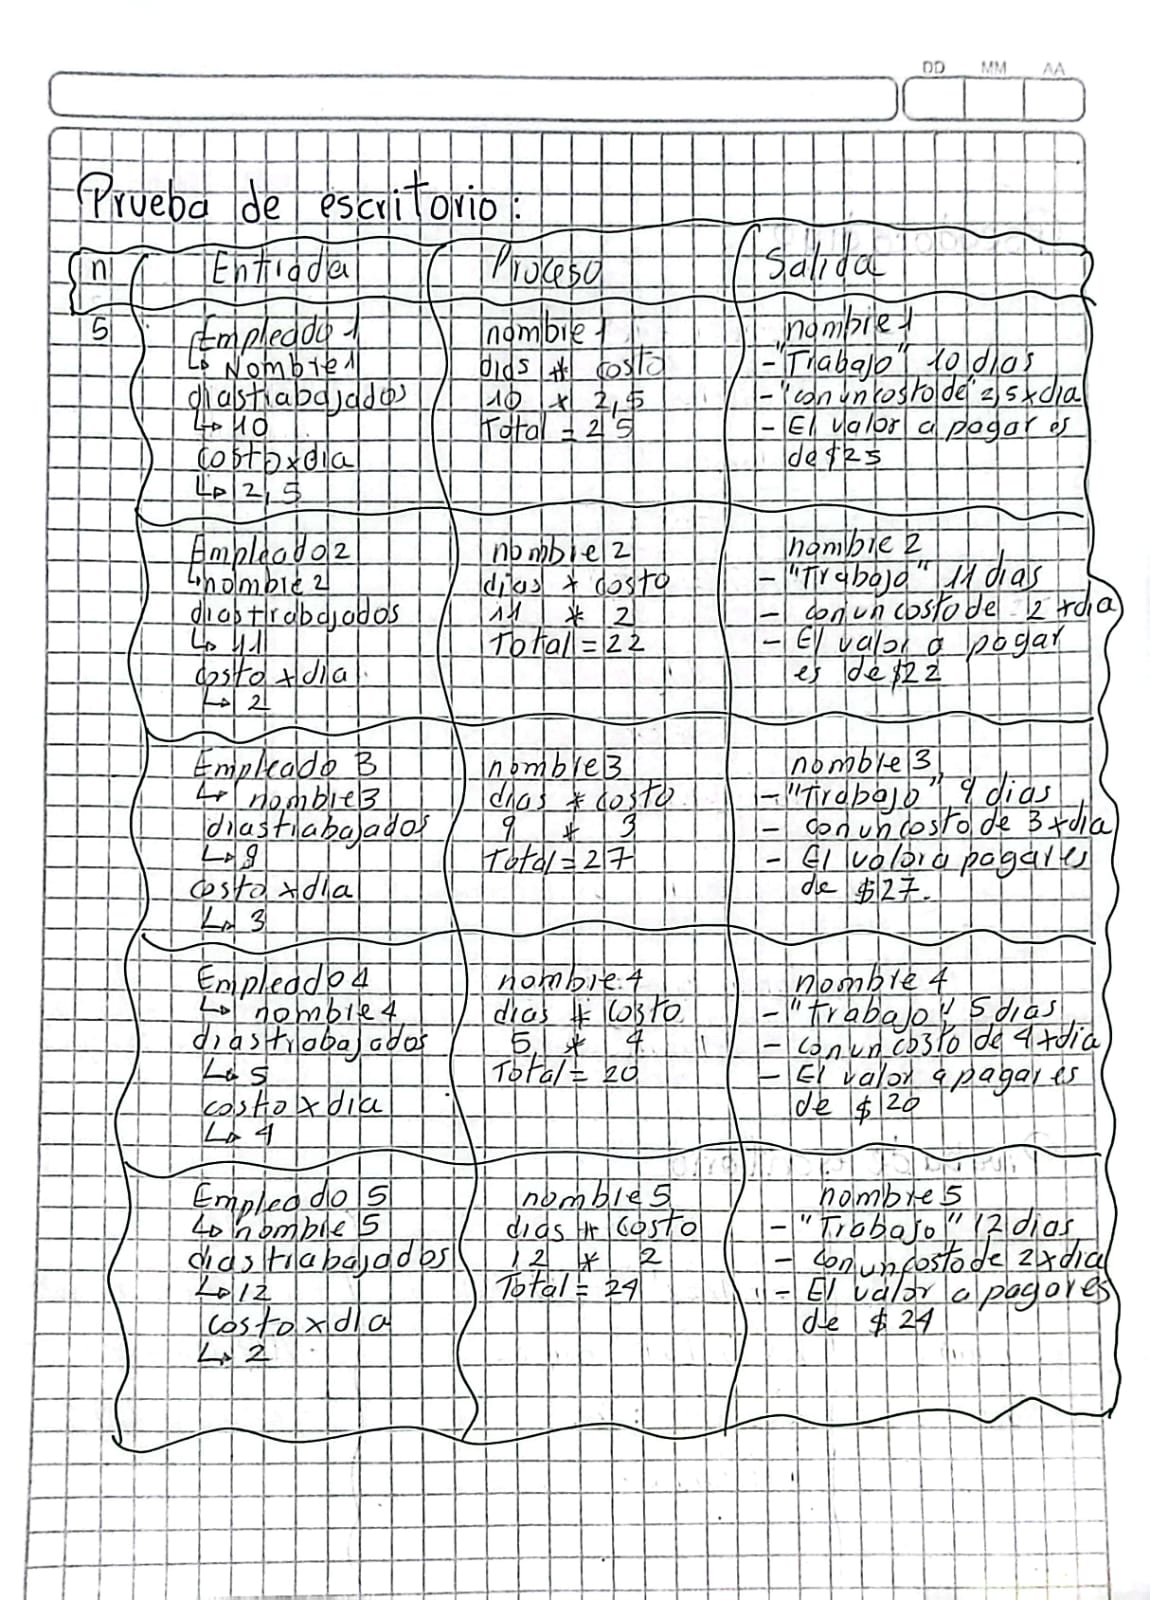 DD MM AA
Prueba de escritorio:
n Entrada Proceso Salida
5
Empleado 1
↳ Nombre 1
diastrabajados
↳ 10
costo x dia
↳ 2,5
nombre 1
dias * costo
10 * 2,5
Total = 25
nombre 1
- "Trabajo" 10 dias
- "con un costo de 2,5 x dia
- El valor a pagar es
de $25
Empleado 2
↳ nombre 2
diastrabajados
↳ 11
costo x dia
↳ 2
nombre 2
dias * costo
11 * 2
Total = 22
nombre 2
- "Trabajo" 11 dias
- con un costo de 2 x dia
- El valor a pagar
es de $22
Empleado 3
↳ nombre 3
diastrabajados
↳ 9
costo x dia
↳ 3
nombre 3
dias * costo
9 * 3
Total = 27
nombre 3
- "Trabajo" 9 dias
- con un costo de 3 x dia
- El valor a pagar es
de $27.
Empleado 4
↳ nombre 4
diastrabajados
↳ 5
costo x dia
↳ 4
nombre 4
dias * costo
5 * 4
Total = 20
nombre 4
- "Trabajo" 5 dias
- con un costo de 4 x dia
- El valor a pagar es
de $20
Empleado 5
↳ nombre 5
dias trabajados
↳ 12
costo x dia
↳ 2
nombre 5
dias * costo
12 * 2
Total = 24
nombre 5
- "Trabajo" 12 dias
- con un costo de 2 x dia
- El valor a pagar es
de $24